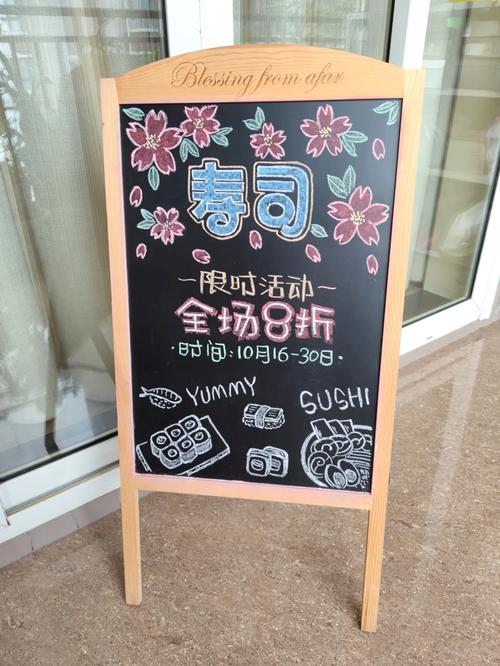 Blessing from afar
寿司
—限时活动—
全场8折
·时间:10月16-30日·
YUMMY
SUSHI